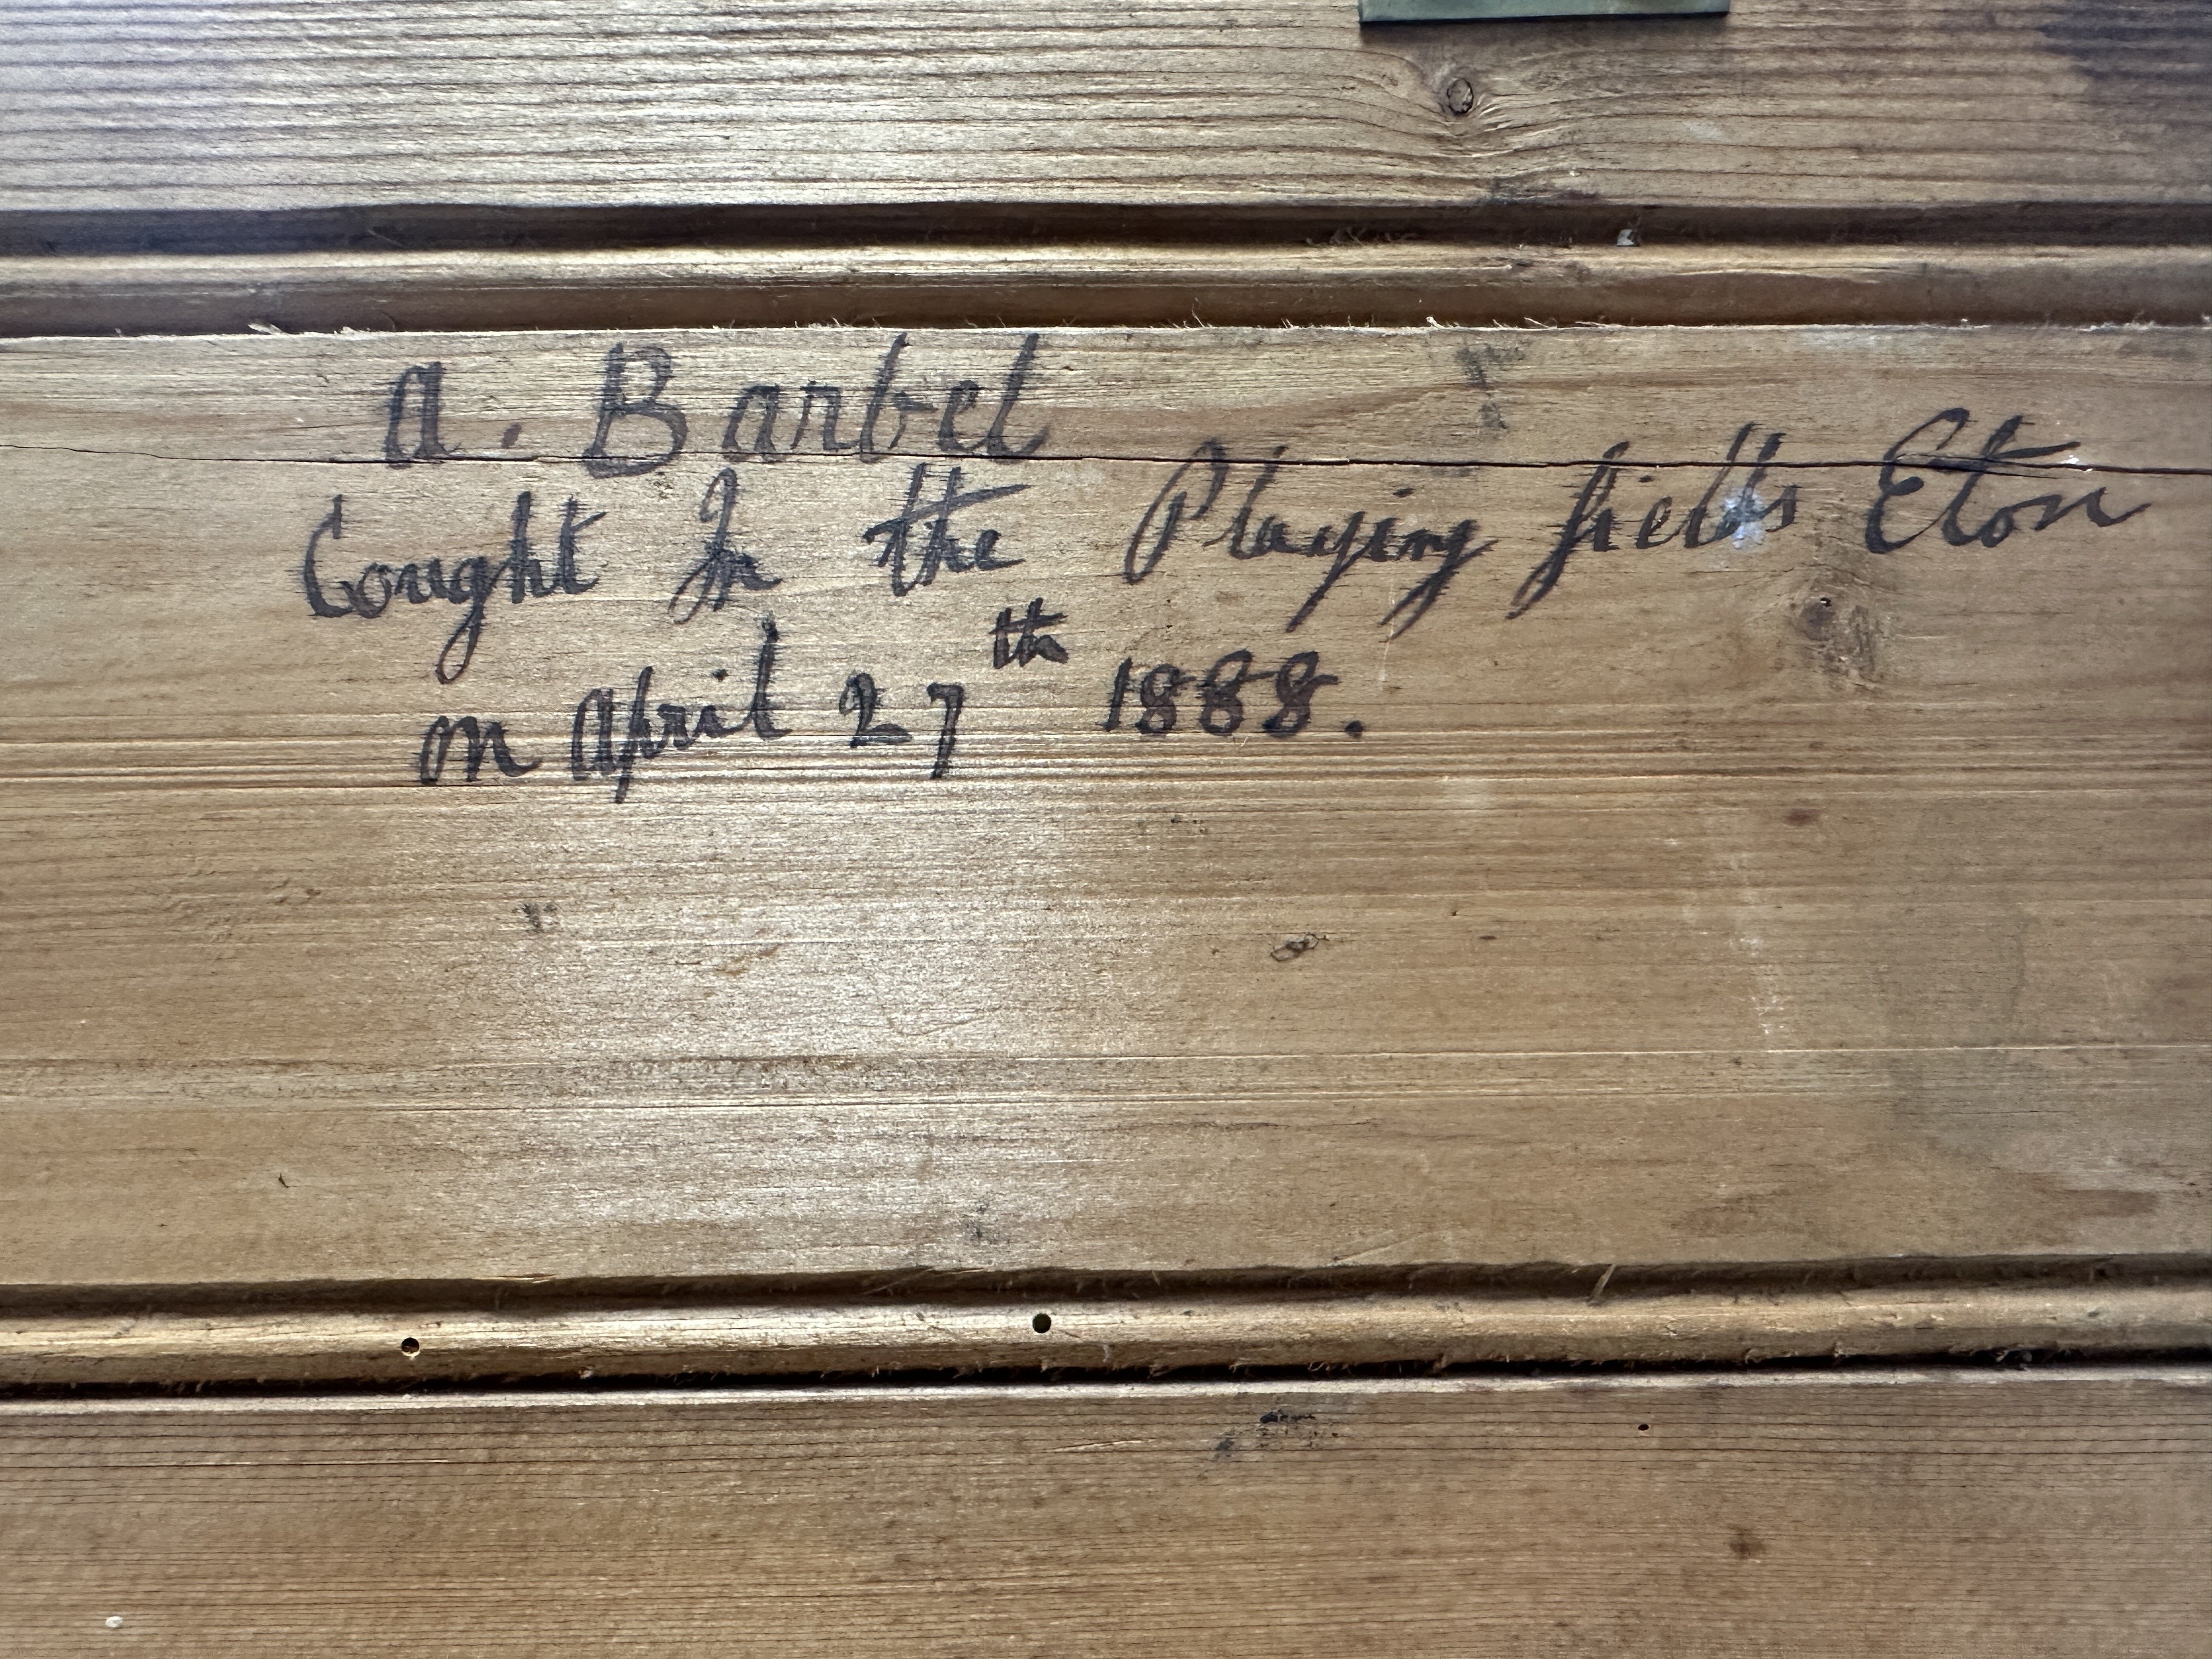 A. Barbel
Cought In the Playing fields Eton
on April 27th 1888.